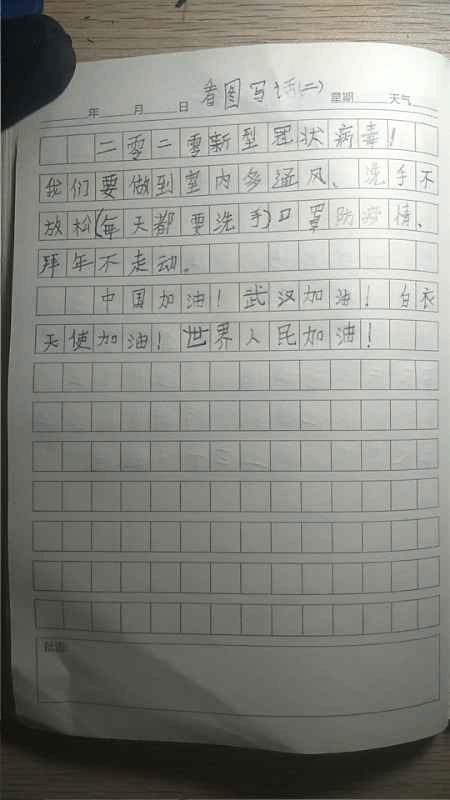 看图写话(二)
年 月 日 星期 天气
二零二零新型冠状病毒!
我们要做到室内多通风、洗手不
放松(每天都要洗手)口罩防疫情、
拜年不走动。
中国加油!武汉加油!白衣
天使加油!世界人民加油!